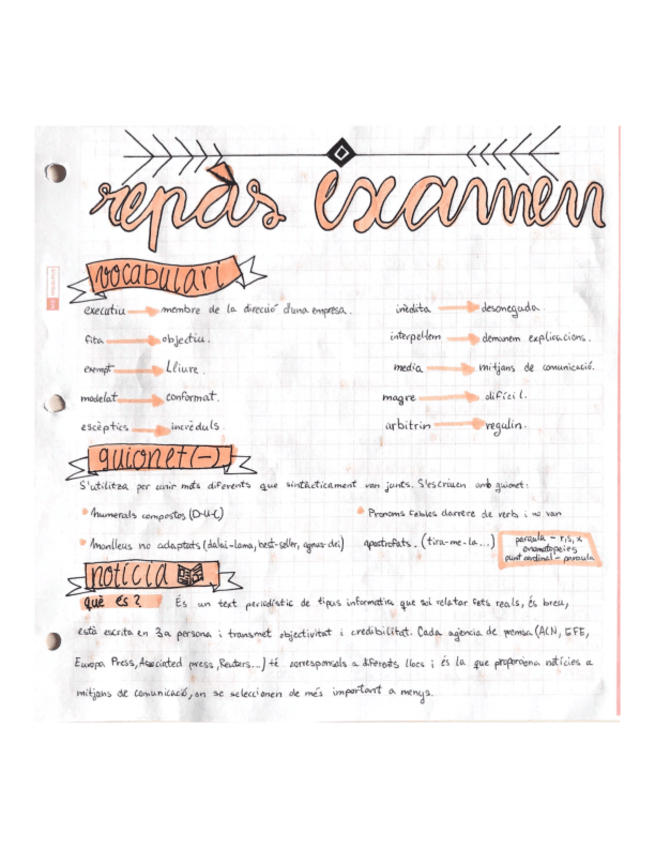 repàs examen
vocabulari
executiu → membre de la direcció d'una empresa.
inèdita → desconeguda.
fita → objectiu.
interpel·lem → demanem explicacions.
exempt → Lliure.
media → mitjans de comunicació.
modelat → conformat.
magre → difícil.
escèptics → incrèduls.
arbitrin → regulin.
guionet (-)
S'utilitza per unir mots diferents que sintàcticament van junts. S'escriuen amb guionet:
• Numerals compostos (D-U-C)
• Pronoms febles darrere de verb i no van
• Manlleus no adaptats (dalai-lama, best-seller, agnus-dei)
apostrofats. (tira-me-la...)
paraula - r, s, x
onomatopeies
punt cardinal - paraula
notícia
què és? És un text periodístic de tipus informatiu que sol relatar fets reals, és breu,
està escrita en 3a persona i transmet objectivitat i credibilitat. Cada agència de premsa (ACN, EFE,
Europa Press, Associated press, Reuters...) té corresponsals a diferents llocs i és la que proporciona notícies a
mitjans de comunicació, on se seleccionen de més important a menys.